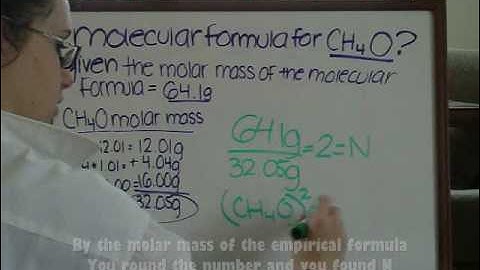 molecular formula for CH₄O?
given the molar mass of the molecular
formula = 64.1g
CH₄O molar mass
12.01= 12.01g
4*1.01= +4.04g
.00 = 16.00g
32.05g
64.1g
32.05g
=2=N
(CH₄O)²
By the molar mass of the empirical formula
You round the number and you found N